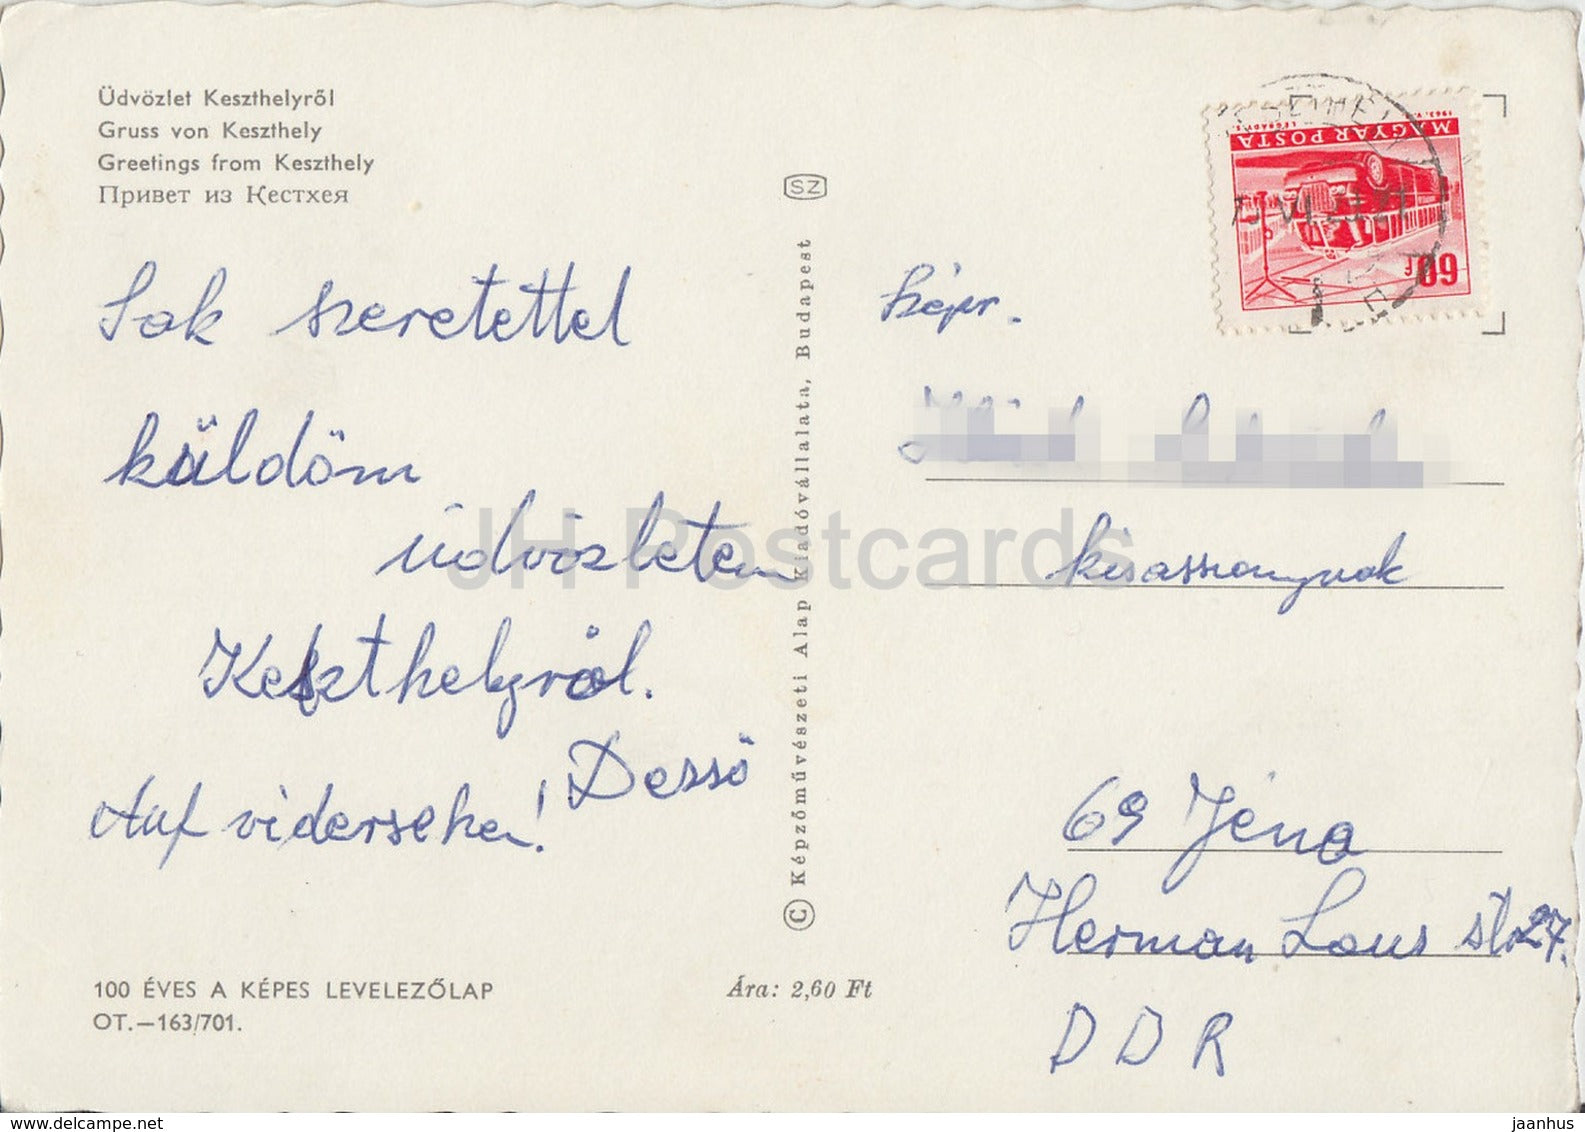 Üdvözlet Keszthelyről
Gruss von Keszthely
Greetings from Keszthely
Привет из Кестхея
Sok szeretettel
küldöm
üdvözletem
Keszthelyről.
Dezső
Auf vidersehen!
100 ÉVES A KÉPES LEVELEZŐLAP
OT.—163/701.
Ára: 2,60 Ft
SZ
© Képzőművészeti Alap Kiadóvállalata, Budapest
MAGYAR POSTA
60 f
Szépr.
kisasszonynak
69 Jéna
Herman Lous str 27.
DDR
JH Postcards
delcampe.net
jaanhus